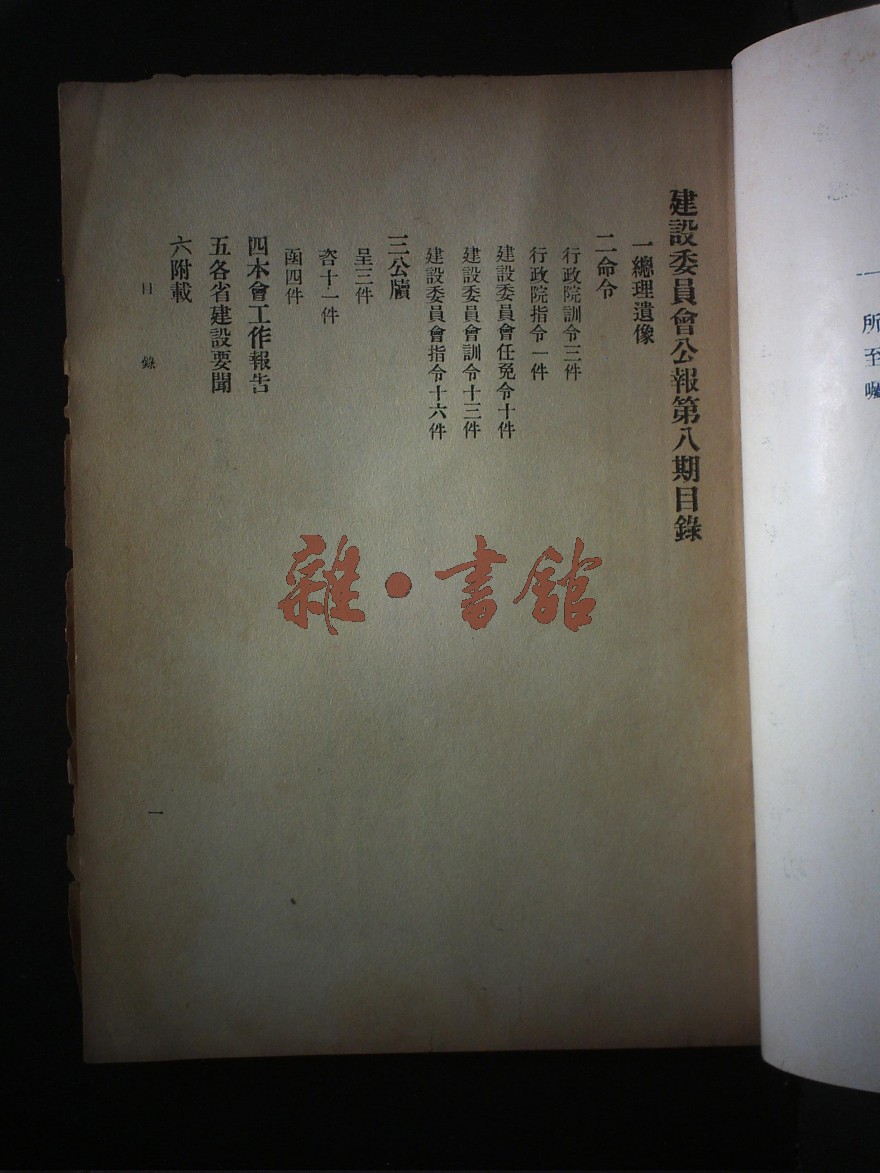 建設委員會公報第八期目錄
一總理遺像
二命令
行政院訓令三件
行政院指令一件
建設委員會任免令十件
建設委員會訓令十三件
建設委員會指令十六件
三公牘
呈三件
咨十一件
函四件
四本會工作報告
五各省建設要聞
六附載
目錄
一
雜·書館
所
至